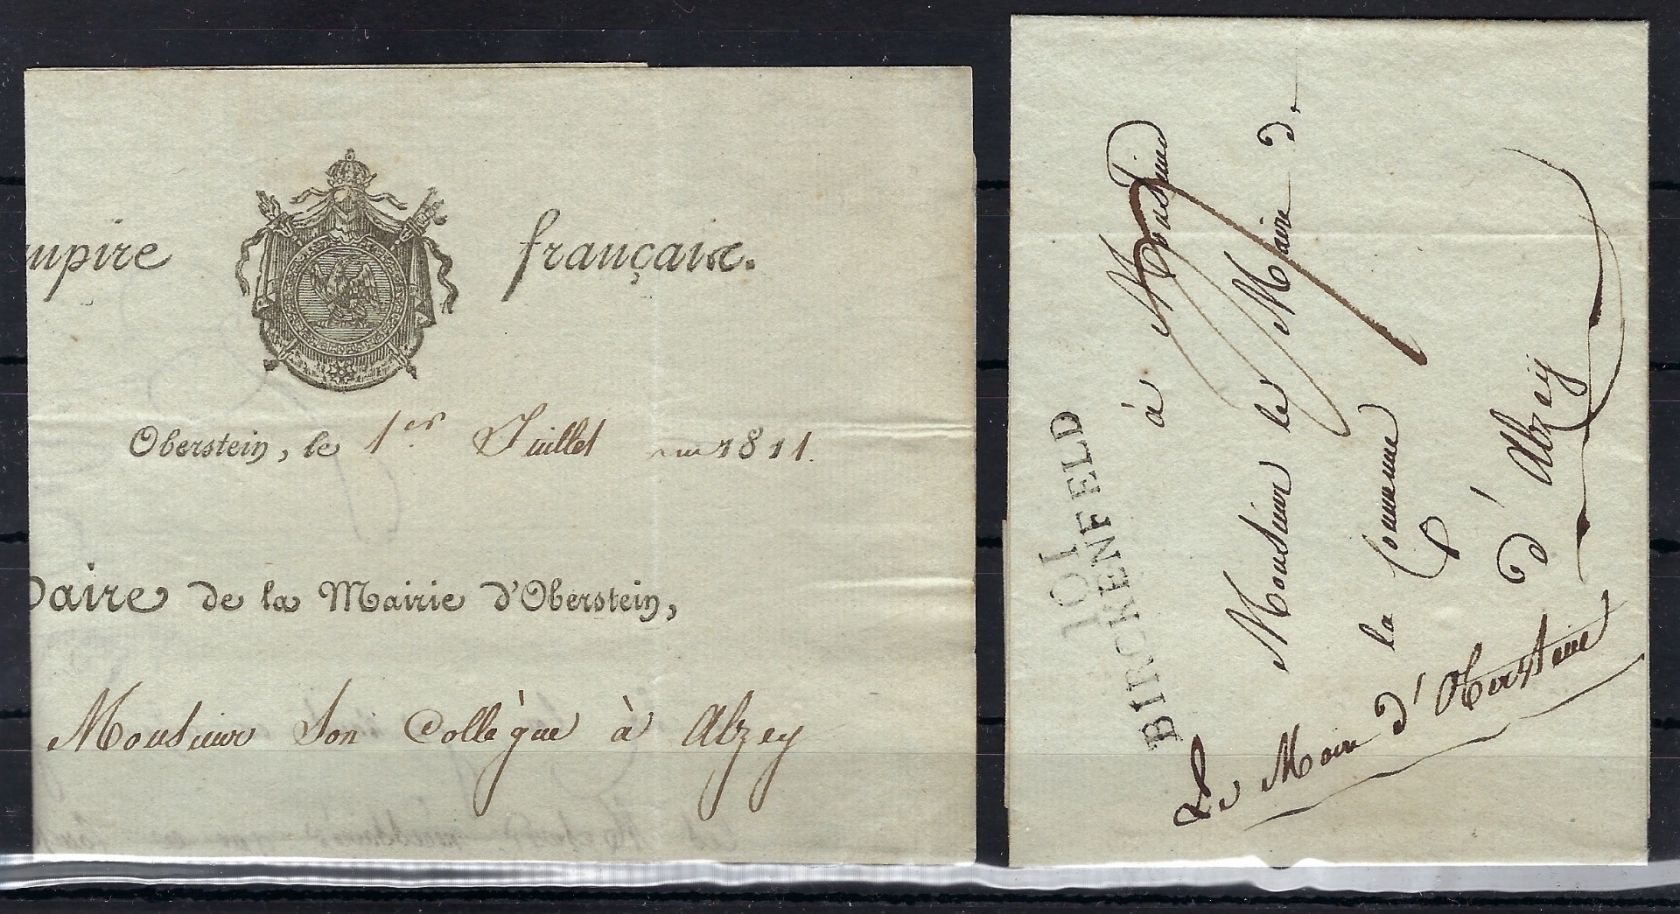 mpire français.
Oberstein, le 1er Juillet 1811.
Daire de la Mairie d'Oberstein,
Monsieur Son Collègue à Alzey
101
BIRCKENFELD
à Monsieur
Monsieur le Maire de
la Commune
d'Alzey
Le Maire d'Oberstein